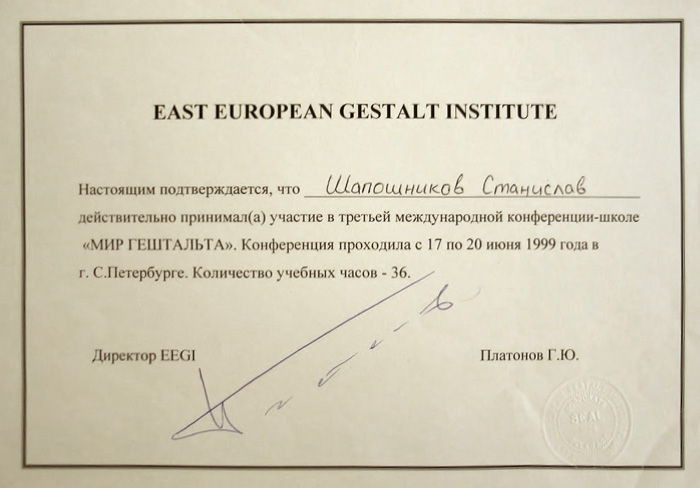 EAST EUROPEAN GESTALT INSTITUTE
Настоящим подтверждается, что Шапошников Станислав
действительно принимал(а) участие в третьей международной конференции-школе
«МИР ГЕШТАЛЬТА». Конференция проходила с 17 по 20 июня 1999 года в
г. С.Петербурге. Количество учебных часов - 36.
Директор EEGI Платонов Г.Ю.
SEAL